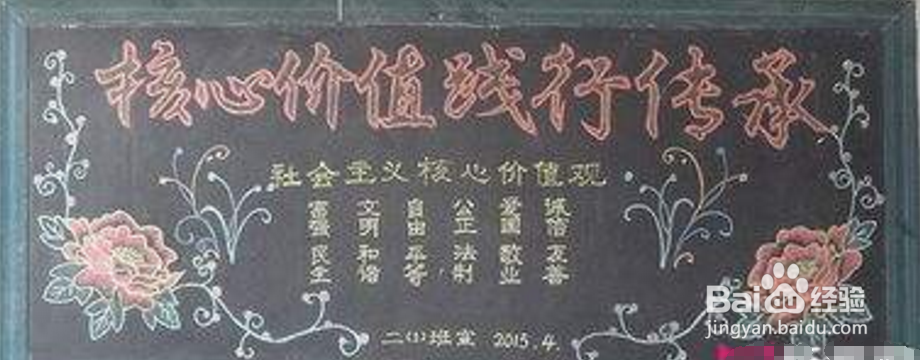 核心价值践行传承
社会主义核心价值观
富强民主
文明和谐
自由平等
公正法制
爱国敬业
诚信友善
二(1)班宣 2015.4.
Baidu 经验
jingyan.baidu.com